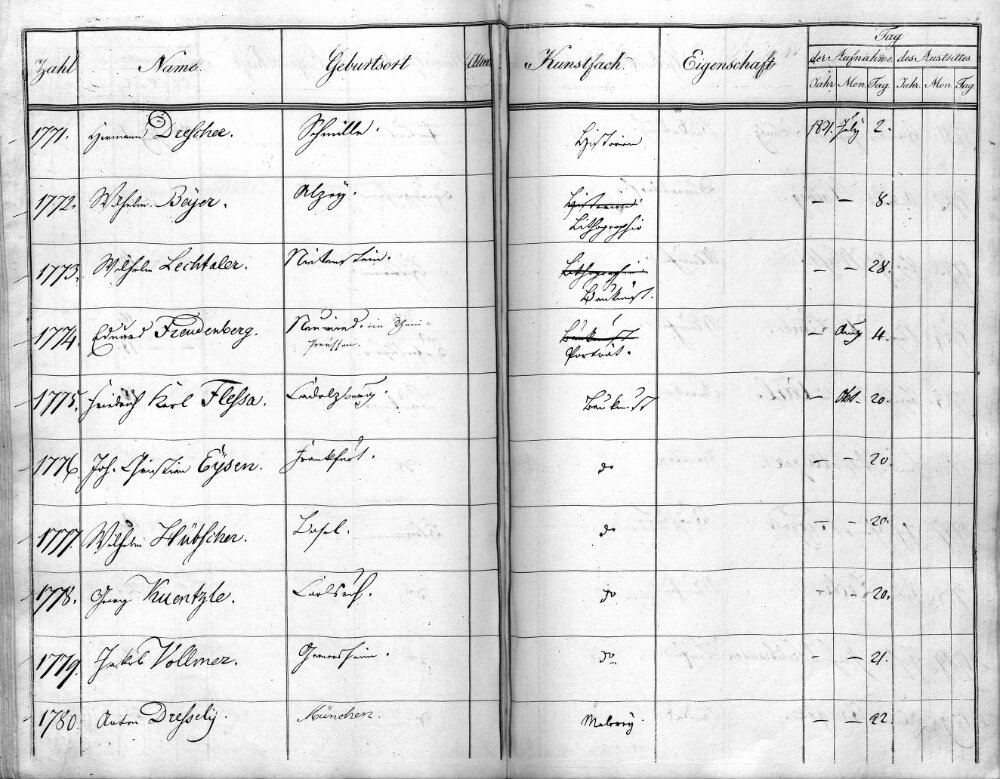 Zahl Name. Geburtsort Alter Kunstfach. Eigenschaft Tag
der Aufnahme des Austrittes
Jahr Mon Tag. Jahr. Mon Tag
1771. Hermann Drescher. 1821. July 2.
Historien
1772. Wilhelm Beyer. Alzey. Historien – – 8.
Lithographie
1773. Wilhelm Lechtaler. Lithographie – – 28.
Baukunst.
1774. Eduard Freudenberg. Neuwied. im Rhein- Baukunst – Aug 4.
preussen. Porträt.
1775. Friedrich Karl Flessa. Cadolzburg. Baukunst – Okt. 20.
1776. Joh. Christian Eysen. Frankfurt. do – – 20.
1777. Wilhelm Hübscher. Basel. do – – 20.
1778. Georg Kuentzle. Carlsruh. do – – 20.
1779. Jakob Vollmer. Germersheim. do – – 21.
1780. Anton Dressely. München. Malerey. – – 22.